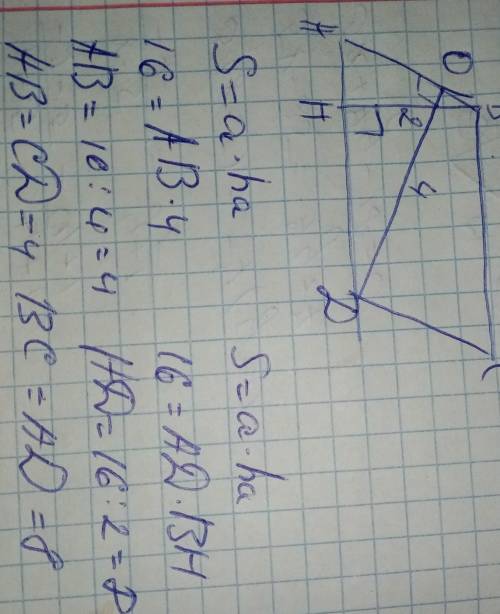 A
O
B
H
2
4
D
C
S = a · ha
16 = AB · 4
AB = 16 : 4 = 4
AB = CD = 4
S = a · ha
16 = AD · BH
AD = 16 : 2 = 8
BC = AD = 8